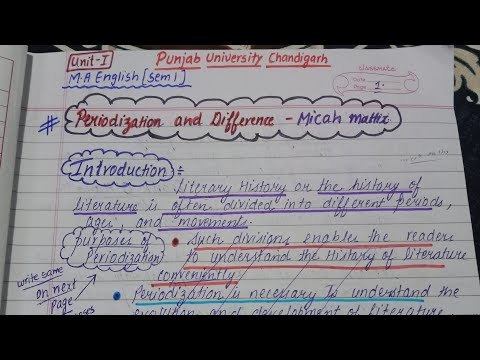 Unit-I
Punjab University Chandigarh
M.A English [Sem 1]
classmate
Date
Page 1.
# Periodization and Difference - Micah mattix
Introduction :-
Literary History or the history of
literature is often divided into different periods,
ages and movements.
Purposes of
Periodization
• Such divisions enables the reader
to understand the History of literature
conveniently
write same
on next
page
• Periodization is necessary to understand the
evolution and development of literature